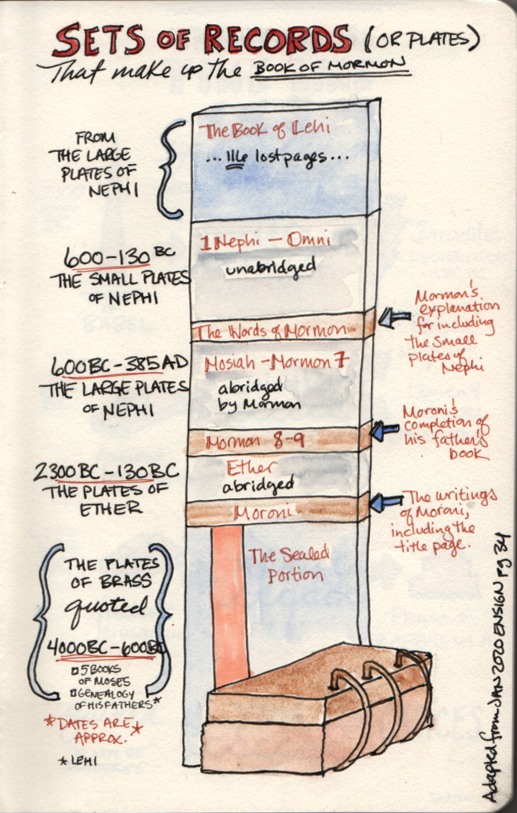 SETS OF RECORDS (OR PLATES)
That make up the BOOK OF MORMON
FROM
THE LARGE
PLATES OF
NEPHI
The Book of Lehi
...116 lost pages...
600-130 BC
THE SMALL PLATES
OF NEPHI
1 Nephi - Omni
unabridged
The Words of Mormon
Mormon's
explanation
for including
the Small
plates of
Nephi
600 BC-385 AD
THE LARGE PLATES
OF NEPHI
Mosiah - Mormon 7
abridged
by Mormon
Mormon 8-9
Moroni's
completion of
his father's
book
2300 BC-130 BC
THE PLATES OF
ETHER
Ether
abridged
Moroni
The writings
of Moroni,
including the
title page.
THE PLATES
OF BRASS
quoted
4000 BC-600 BC
5 BOOKS
OF MOSES
GENEALOGY
OF HIS FATHERS*
*DATES ARE*
APPROX.
* LEHI
The Sealed
Portion
Adapted from JAN 2020 ENSIGN pg 34